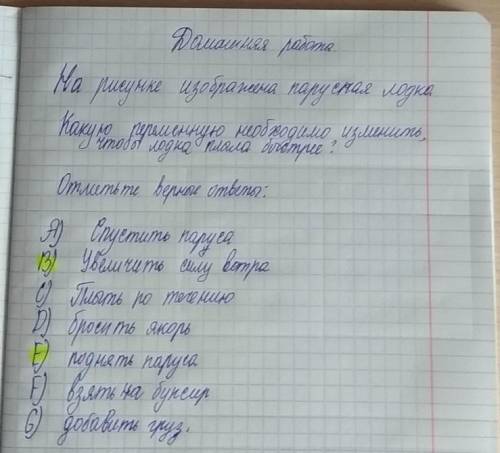 Домашняя работа
На рисунке изображена парусная лодка
Какую переменную необходимо изменить,
чтобы лодка плыла быстрее?
Отметьте верные ответы:
A) Спустить паруса
B) Увеличить силу ветра
C) Плыть по течению
D) бросить якорь
E) поднять паруса
F) взять на буксир
G) добавить груз.